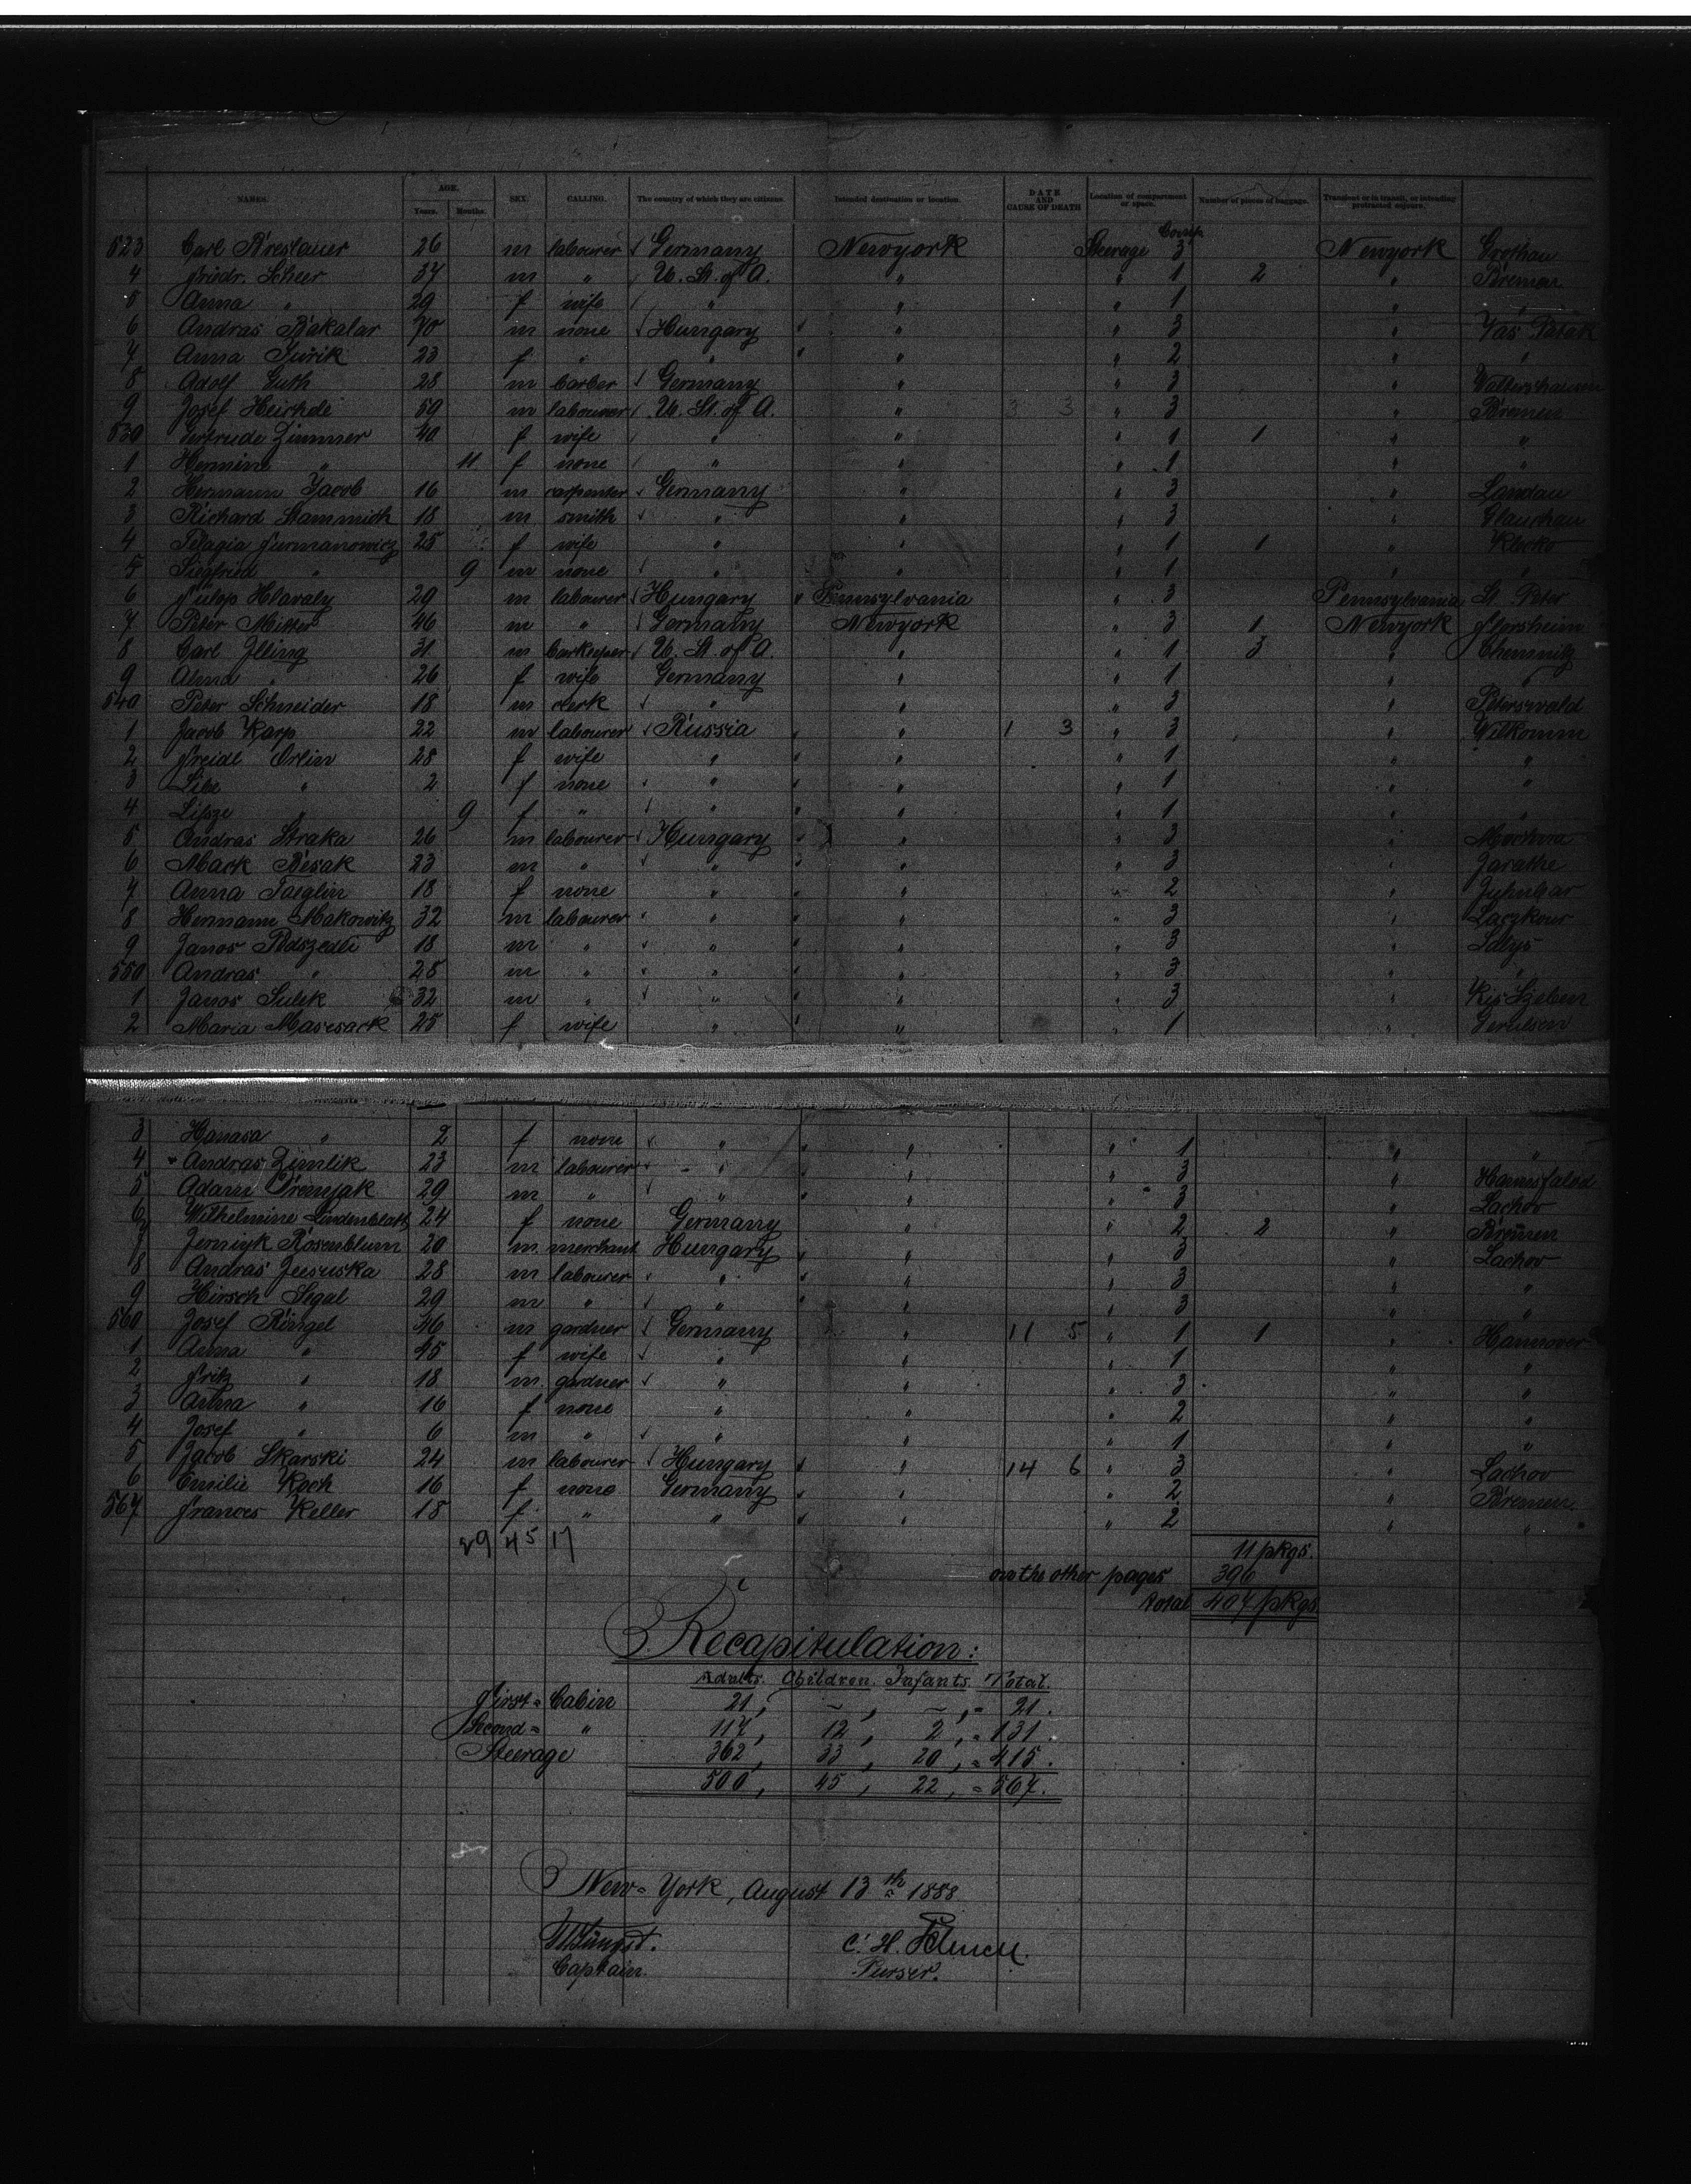 NAMES. AGE. Years. Months. SEX. CALLING. The country of which they are citizens. Intended destination or location. DATE AND CAUSE OF DEATH Location of compartment or space. Number of pieces of baggage. Transient or in transit, or intending protracted sojourn.
523 Carl Breslauer 26 m labourer Germany Newyork Steerage Comp. 3 Newyork Grothau
4 Friedr. Scheer 37 m " U. St. of A. " " 1 2 " Bremen
5 Anna " 29 f wife " " " 1 " "
6 Andras Bakalar 70 m none Hungary " " 3 "
7 Anna Jurik 23 f " " " " 2 " "
8 Adolf Guth 28 m barber Germany " " 3 " Waltershausen
9 Josef Heichde 59 m labourer U. St. of A. " 3 3 " 3 " Bremen
530 Gertrude Zimmer 40 f wife " " " 1 1 " "
1 Hermine " 11 f none " " " 1 " "
2 Hermann Jacob 16 m carpenter Germany " " 3 " Landau
3 Richard Stammich 18 m smith " " " 3 " Glauchau
4 Pelagia Furmanowicz 25 f wife " " " 1 1 " Klecko
5 Siegfried " 9 m none " " " 1 " "
6 Fulop Hlavaly 29 m labourer Hungary Pennsylvania " 3 Pennsylvania St. Peter
7 Peter Mitter 46 m " Germany Newyork " 3 1 Newyork Florsheim
8 Carl Illing 31 m barkeeper U. St. of A. " " 1 3 " Chemnitz
9 Alma " 26 f wife Germany " " 1 " "
540 Peter Schneider 18 m clerk " " " 3 " Peterswald
1 Jacob Karp 22 m labourer Russia " 1 3 " 3 " Wilkomm
2 Freide Orlin 28 f wife " " " 1 " "
3 Libe " 2 f none " " " 1 " "
4 Lipze " 9 f " " " " 1 " "
5 Andras Straka 26 m labourer Hungary " " 3 "
6 Mark Besak 23 m " " " " 3 " Jarathe
7 Anna Taiglin 18 f none " " " 2 "
8 Hermann Makowitz 32 m labourer " " " 3 "
9 Janos Podszedli 18 m " " " " 3 "
550 Andras " 28 m " " " " 3 " "
1 Janos Sulik 32 m " " " " 3 " Kis Szeben
2 Maria Masesark 25 f wife " " " 1 "
3 Hanasa " 2 f none " " " 1 " "
4 Andras Zimlik 23 m labourer " " " 3 "
5 Adam Premjak 29 m " " " " 3 " Lachov
6 Wilhelmine Lindenblatt 24 f none Germany " " 2 2 " Bremen
7 Jemiyk Rosenblum 20 m merchant Hungary " " 3 " Lachov
8 Andras Jeesuska 28 m labourer " " " 3 " "
9 Hirsch Segal 29 m " " " " 3 " "
560 Josef Ringel 46 m gardner Germany " 11 5 " 1 1 " Hannover
1 Anna " 45 f wife " " " 1 " "
2 Fritz " 18 m gardner " " " 3 " "
3 Anna " 16 f none " " " 2 " "
4 Josef " 6 m " " " " 1 " "
5 Jacob Skarski 24 m labourer Hungary " 14 6 " 3 " Lachov
6 Emilie Koch 16 f none Germany " " 2 " Bremen
567 Frances Keller 18 f " " " " 2 " "
29 45 17
11 pkgs.
on the other pages 396
total 407 pkgs
Recapitulation:
Adults. Children. Infants. Total.
First=Cabin 21, -, -, = 21.
Second= " 117, 12, 2, = 131.
Steerage 362, 33, 20, = 415.
500, 45, 22, = 567.
New=York, August 13th 1888
Captain.
C. H.
Purser.